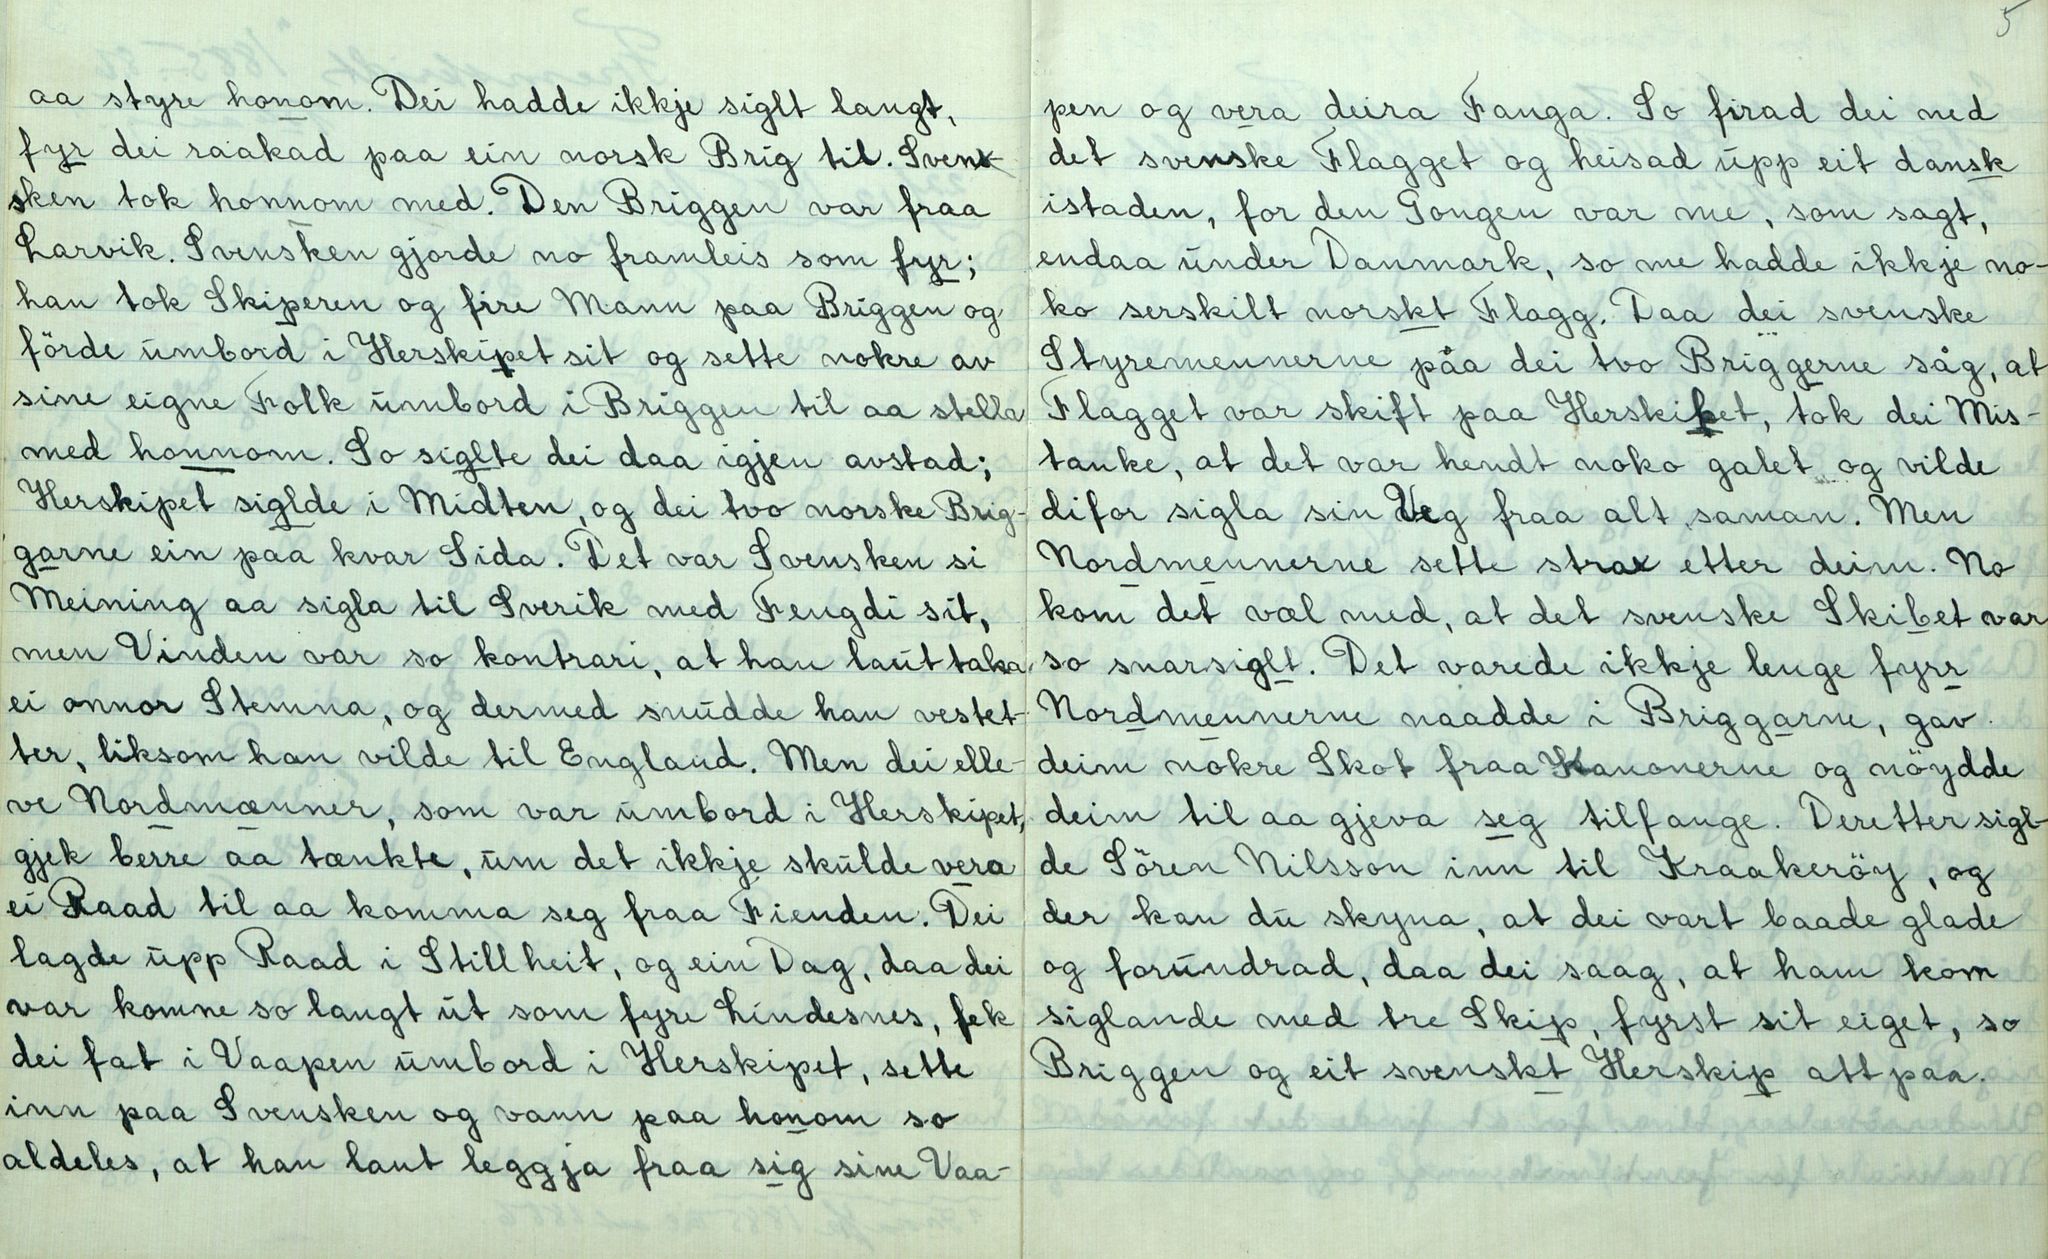 aa styre honom. Dei hadde ikkje siglt langt,
fyr dei raakad paa ein norsk Brig til. Sven-
sken tok honnom med. Den Briggen var fraa
Larvik. Svensken gjorde no framleis som fyr;
han tok Skiperen og fire Mann paa Briggen og
förde umbord i Herskipet sit og sette nokre av
sine eigne Folk umbord i Briggen til aa stella
med honnom. So siglte dei daa igjen avstad;
Herskipet siglde i Midten, og dei tvo norske Brig-
garne ein paa kvar Sida. Det var Svensken si
Meining aa sigla til Sverik med Fengdi sit,
men Vinden var so kontrari, at han laut taka
ei onnor Stemna, og dermed snudde han vestet-
ter, liksom han vilde til England. Men dei elle-
ve Nordmænner, som var umbord i Herskipet,
gjek berre aa tænkte, um det ikkje skulde vera
ei Raad til aa komma seg fraa Fienden. Dei
lagde upp Raad i Stillheit, og ein Dag, daa dei
var komne so langt ut som fyre Lindesnes, fek
dei fat i Vaapen umbord i Herskipet, sette
inn paa Svensken og vann paa honom so
aldeles, at han laut leggja fraa sig sine Vaa-
5
pen og vera deira Fanga. So firad dei ned
det svenske Flagget og heisad upp eit dansk
istaden, for den Gongen var me, som sagt,
endaa under Danmark, so me hadde ikkje no-
ko serskilt norskt Flagg. Daa dei svenske
Styremennerne påa dei tvo Briggerne såg, at
Flagget var skift paa Herskipet, tok dei Mis-
tanke, at det var hendt noko galet og vilde
difor sigla sin Veg fraa alt saman. Men
Nordmennerne sette strax etter deim. No
kom det væl med, at det svenske Skibet var
so snarsiglt. Det varede ikkje lenge fyrr
Nordmennerne naadde i Briggarne, gav
deim nokre Skot fraa Kanonerne og nöydde
deim til aa gjeva seg tilfange. Deretter sigl-
de Sören Nilsson inn til Kraakeröy, og
der kan du skyna, at dei vart baade glade
og forundrad, daa dei saag, at ham kom
siglande med tre Skip, fyrst sit eiget, so
Briggen og eit svenskt Herskip att paa.